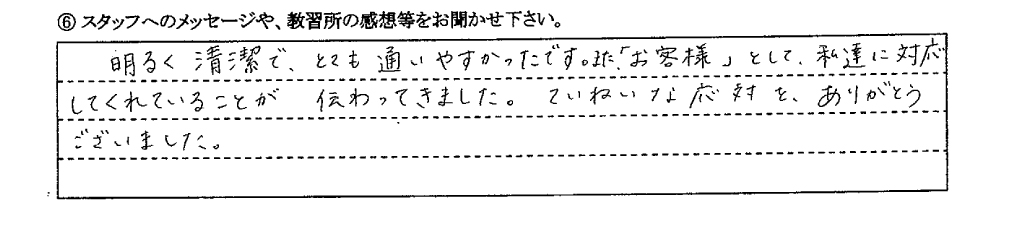 ⑥ スタッフへのメッセージや、教習所の感想等をお聞かせ下さい。
明るく清潔で、とても通いやすかったです。また、「お客様」として、私達に対応
してくれていることが 伝わってきました。ていねいな応対を、ありがとう
ございました。